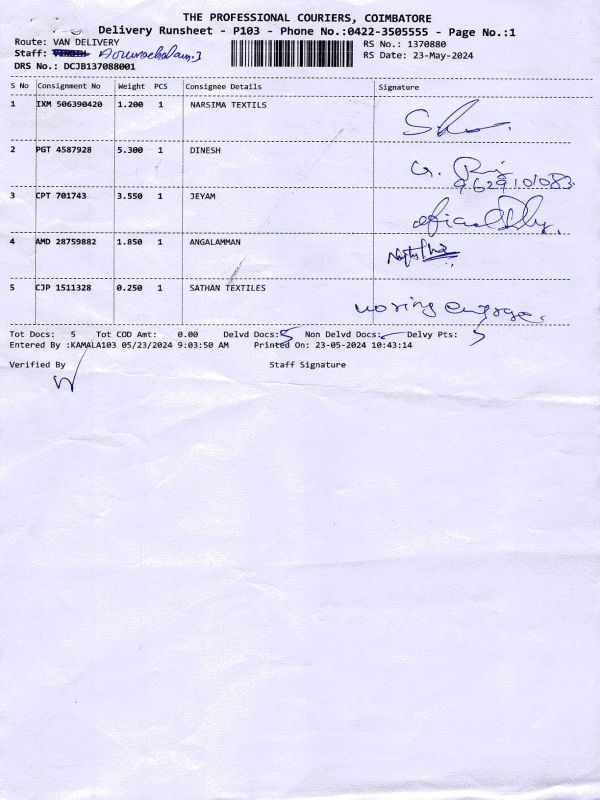 THE PROFESSIONAL COURIERS, COIMBATORE
Delivery Runsheet - P103 - Phone No.:0422-3505555 - Page No.:1
Route: VAN DELIVERY
RS No.: 1370880
Staff: Arunachalam.J
RS Date: 23-May-2024
DRS No.: DCJB137088001
S No Consignment No Weight PCS Consignee Details Signature
1 IXM 506390420 1.200 1 NARSIMA TEXTILS
2 PGT 4587928 5.300 1 DINESH
9629101083
3 CPT 701743 3.550 1 JEYAM
4 AMD 28759882 1.850 1 ANGALAMMAN
5 CJP 1511328 0.250 1 SATHAN TEXTILES
Tot Docs: 5 Tot COD Amt: 0.00 Delvd Docs: 5 Non Delvd Docs: Delvy Pts: 5
Entered By :KAMALA103 05/23/2024 9:03:50 AM Printed On: 23-05-2024 10:43:14
Verified By Staff Signature